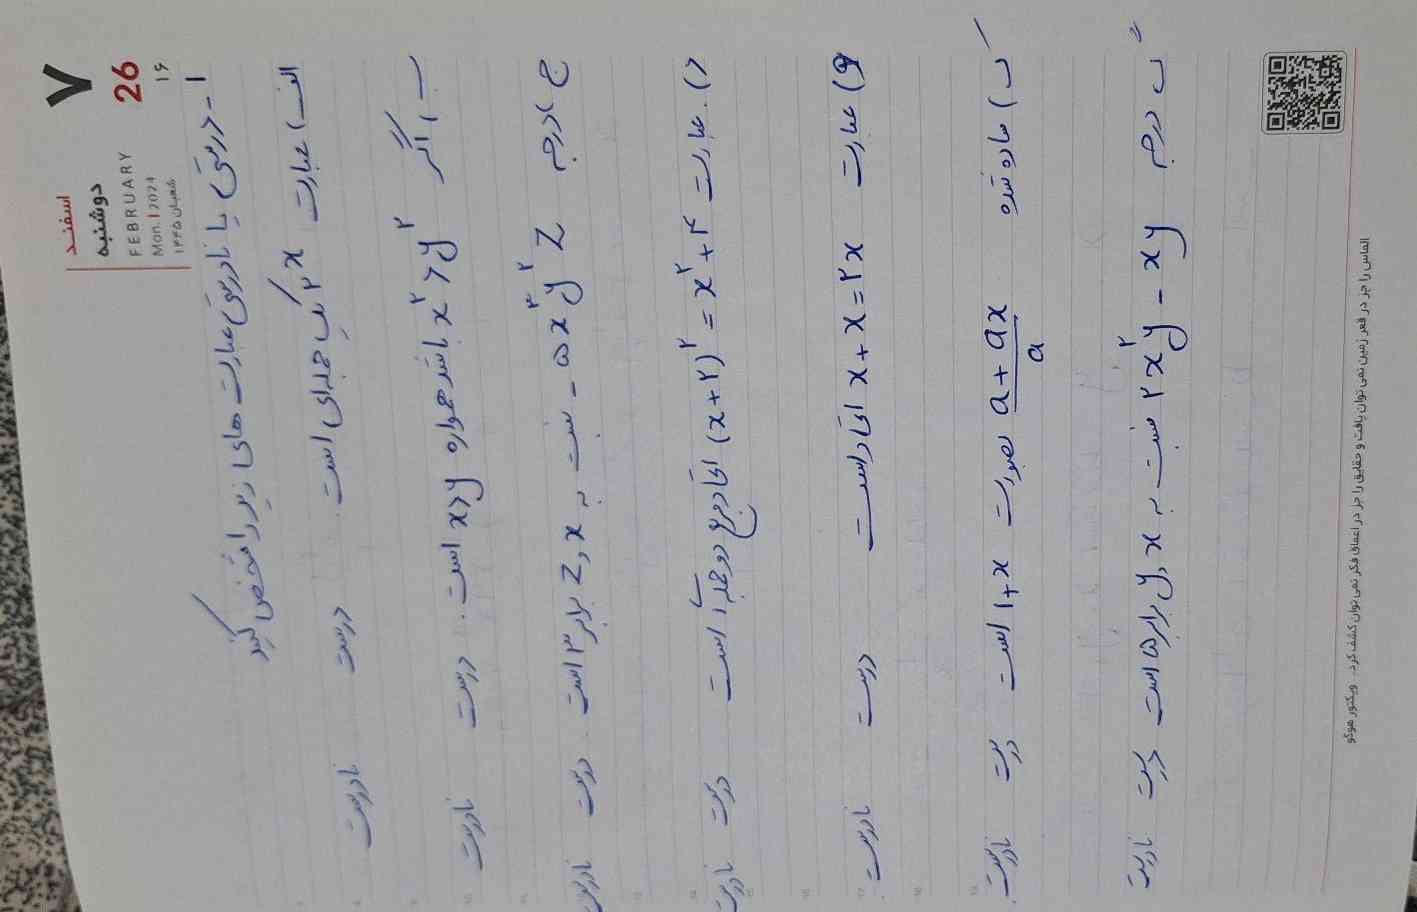 اسفند
۷
دوشنبه
26
FEBRUARY
Mon. | 2024
۱۶
شعبان ۱۴۴۵
۱- درستی یا نادرستی عبارت های زیر را مشخص کنید
الف) عبارت ۲x یک جمله‌ای است. درست نادرست
ب) اگر x² > y² باشد همواره x > y است. درست نادرست
ج) درجه -۵x³y²z نسبت به x و z برابر ۳ است. درست نادرست
د) عبارت (x+۲)² = x²+۴ اتحاد مربع دو جمله است درست نادرست
و) عبارت x+x=۲x اتحاد است درست نادرست
ساده شده a+ax/a بصورت x+۱ است درست نادرست
درجه ۲x²y - xy نسبت به x و y برابر ۵ است درست نادرست
الماس را جز در قعر زمین نمی توان یافت و حقایق را جز در اعماق فکر نمی توان کشف کرد. ویکتور هوگو